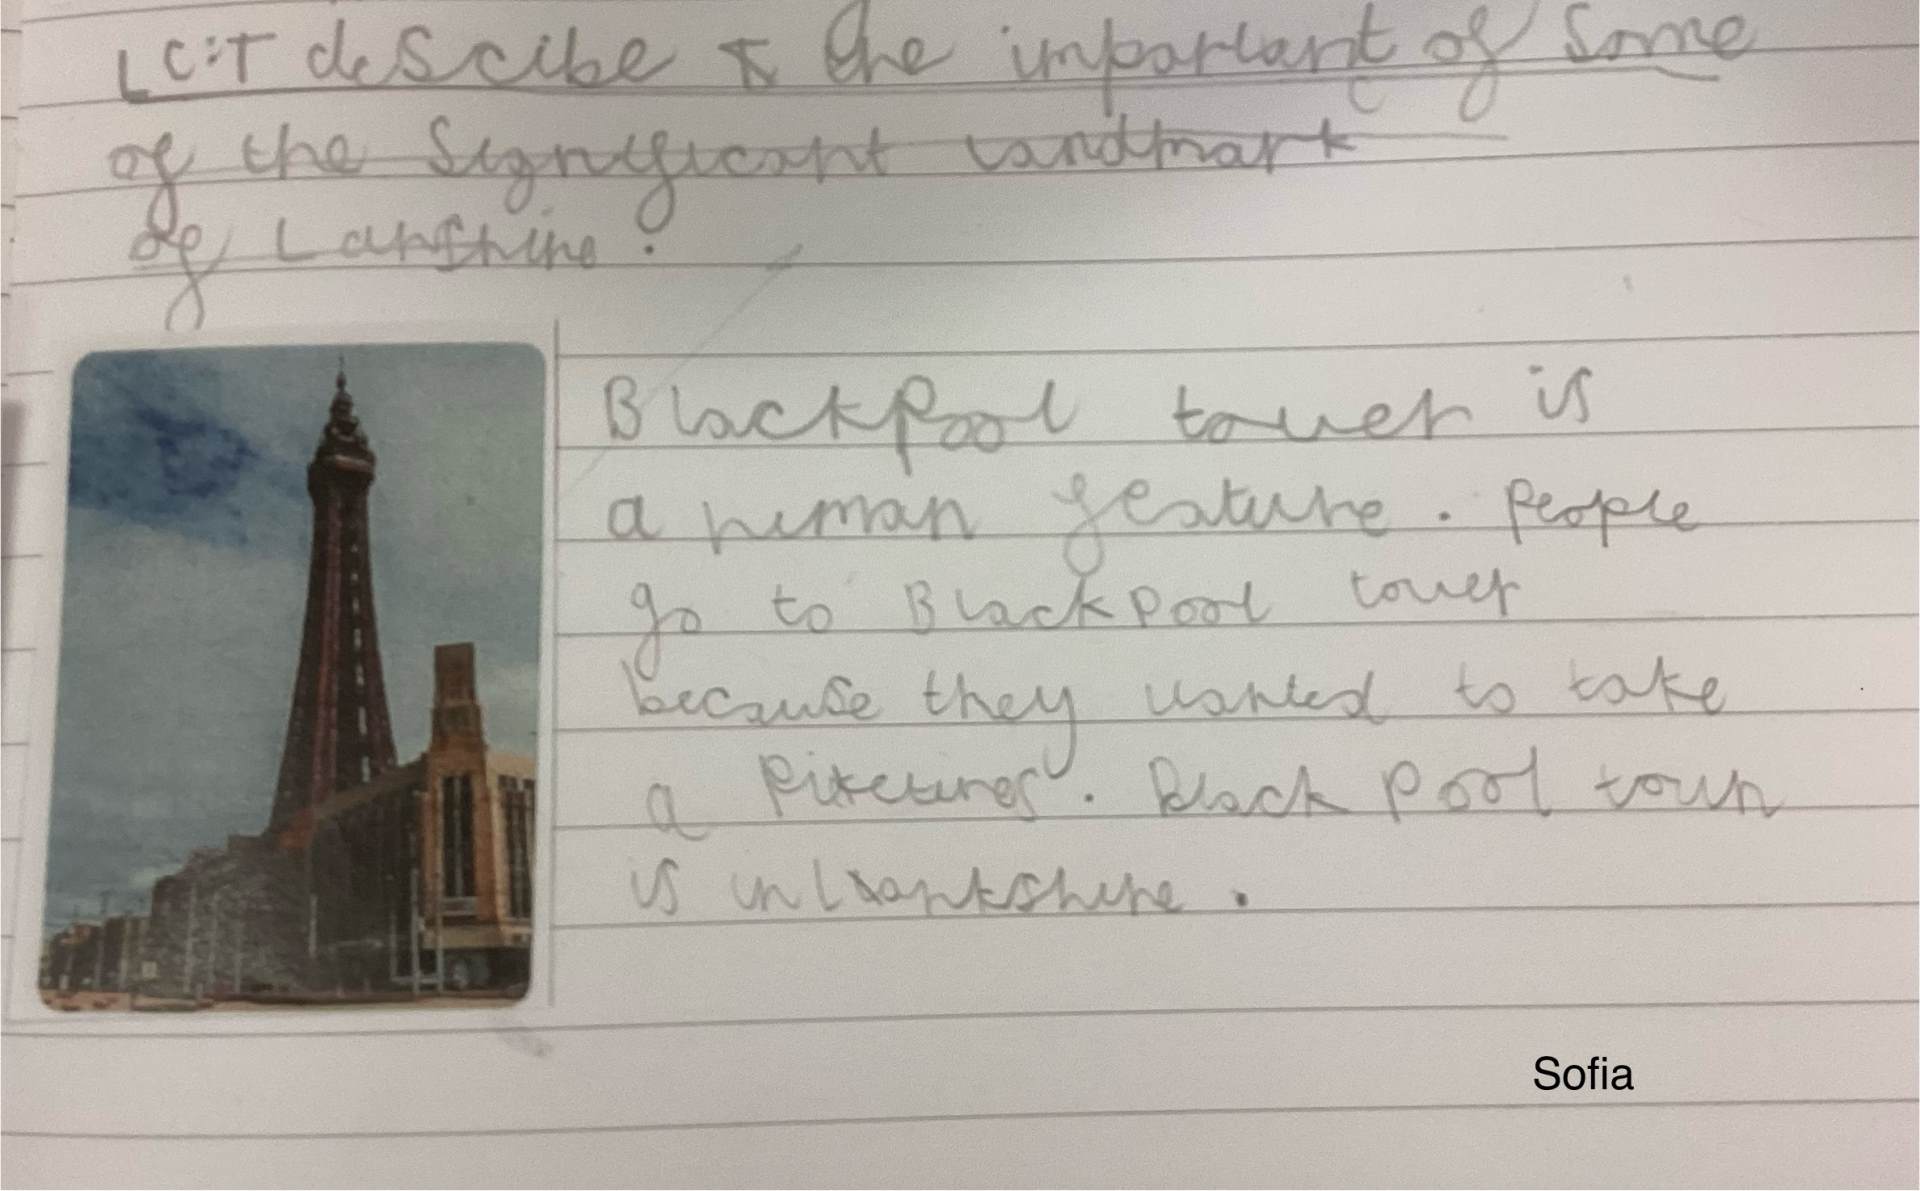 LC:T describe the important of some
of the significant landmark
of Lanshire.
Blackpool tower is
a human feature. People
go to Blackpool tower
because they wanted to take
a Piketures. Black pool
is in
Sofia